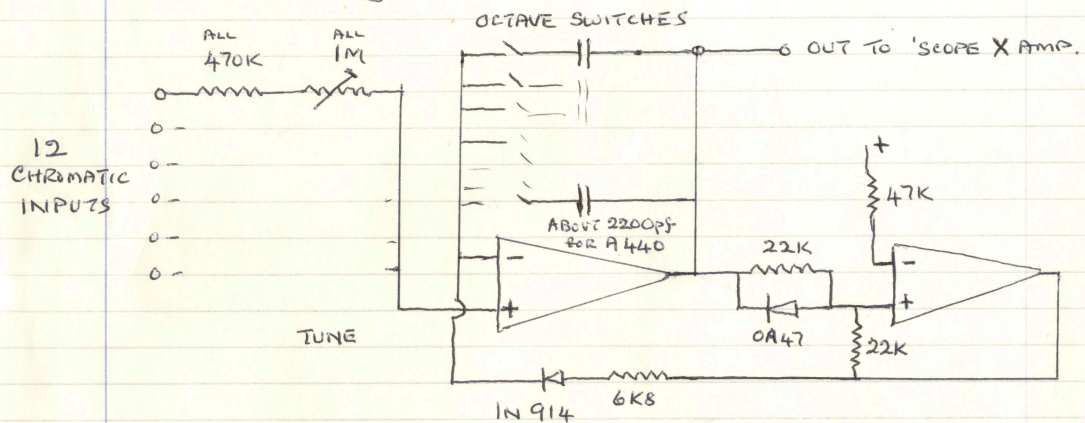 OCTAVE SWITCHES
ALL
470K
ALL
1M
OUT TO 'SCOPE X AMP.
12
CHROMATIC
INPUTS
+
47K
ABOUT 2200pf
FOR A440
22K
-
+
-
+
0A47
22K
TUNE
1N914
6K8